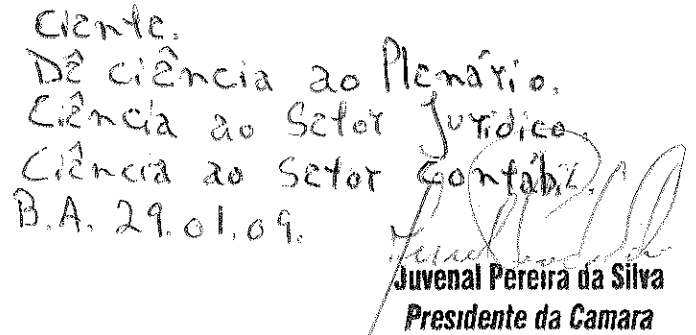 Ciente.
Dê ciência ao Plenário.
Ciência ao Setor Jurídico.
Ciência ao Setor Contábil.
B.A. 29.01.09.
Juvenal Pereira da Silva
Presidente da Camara